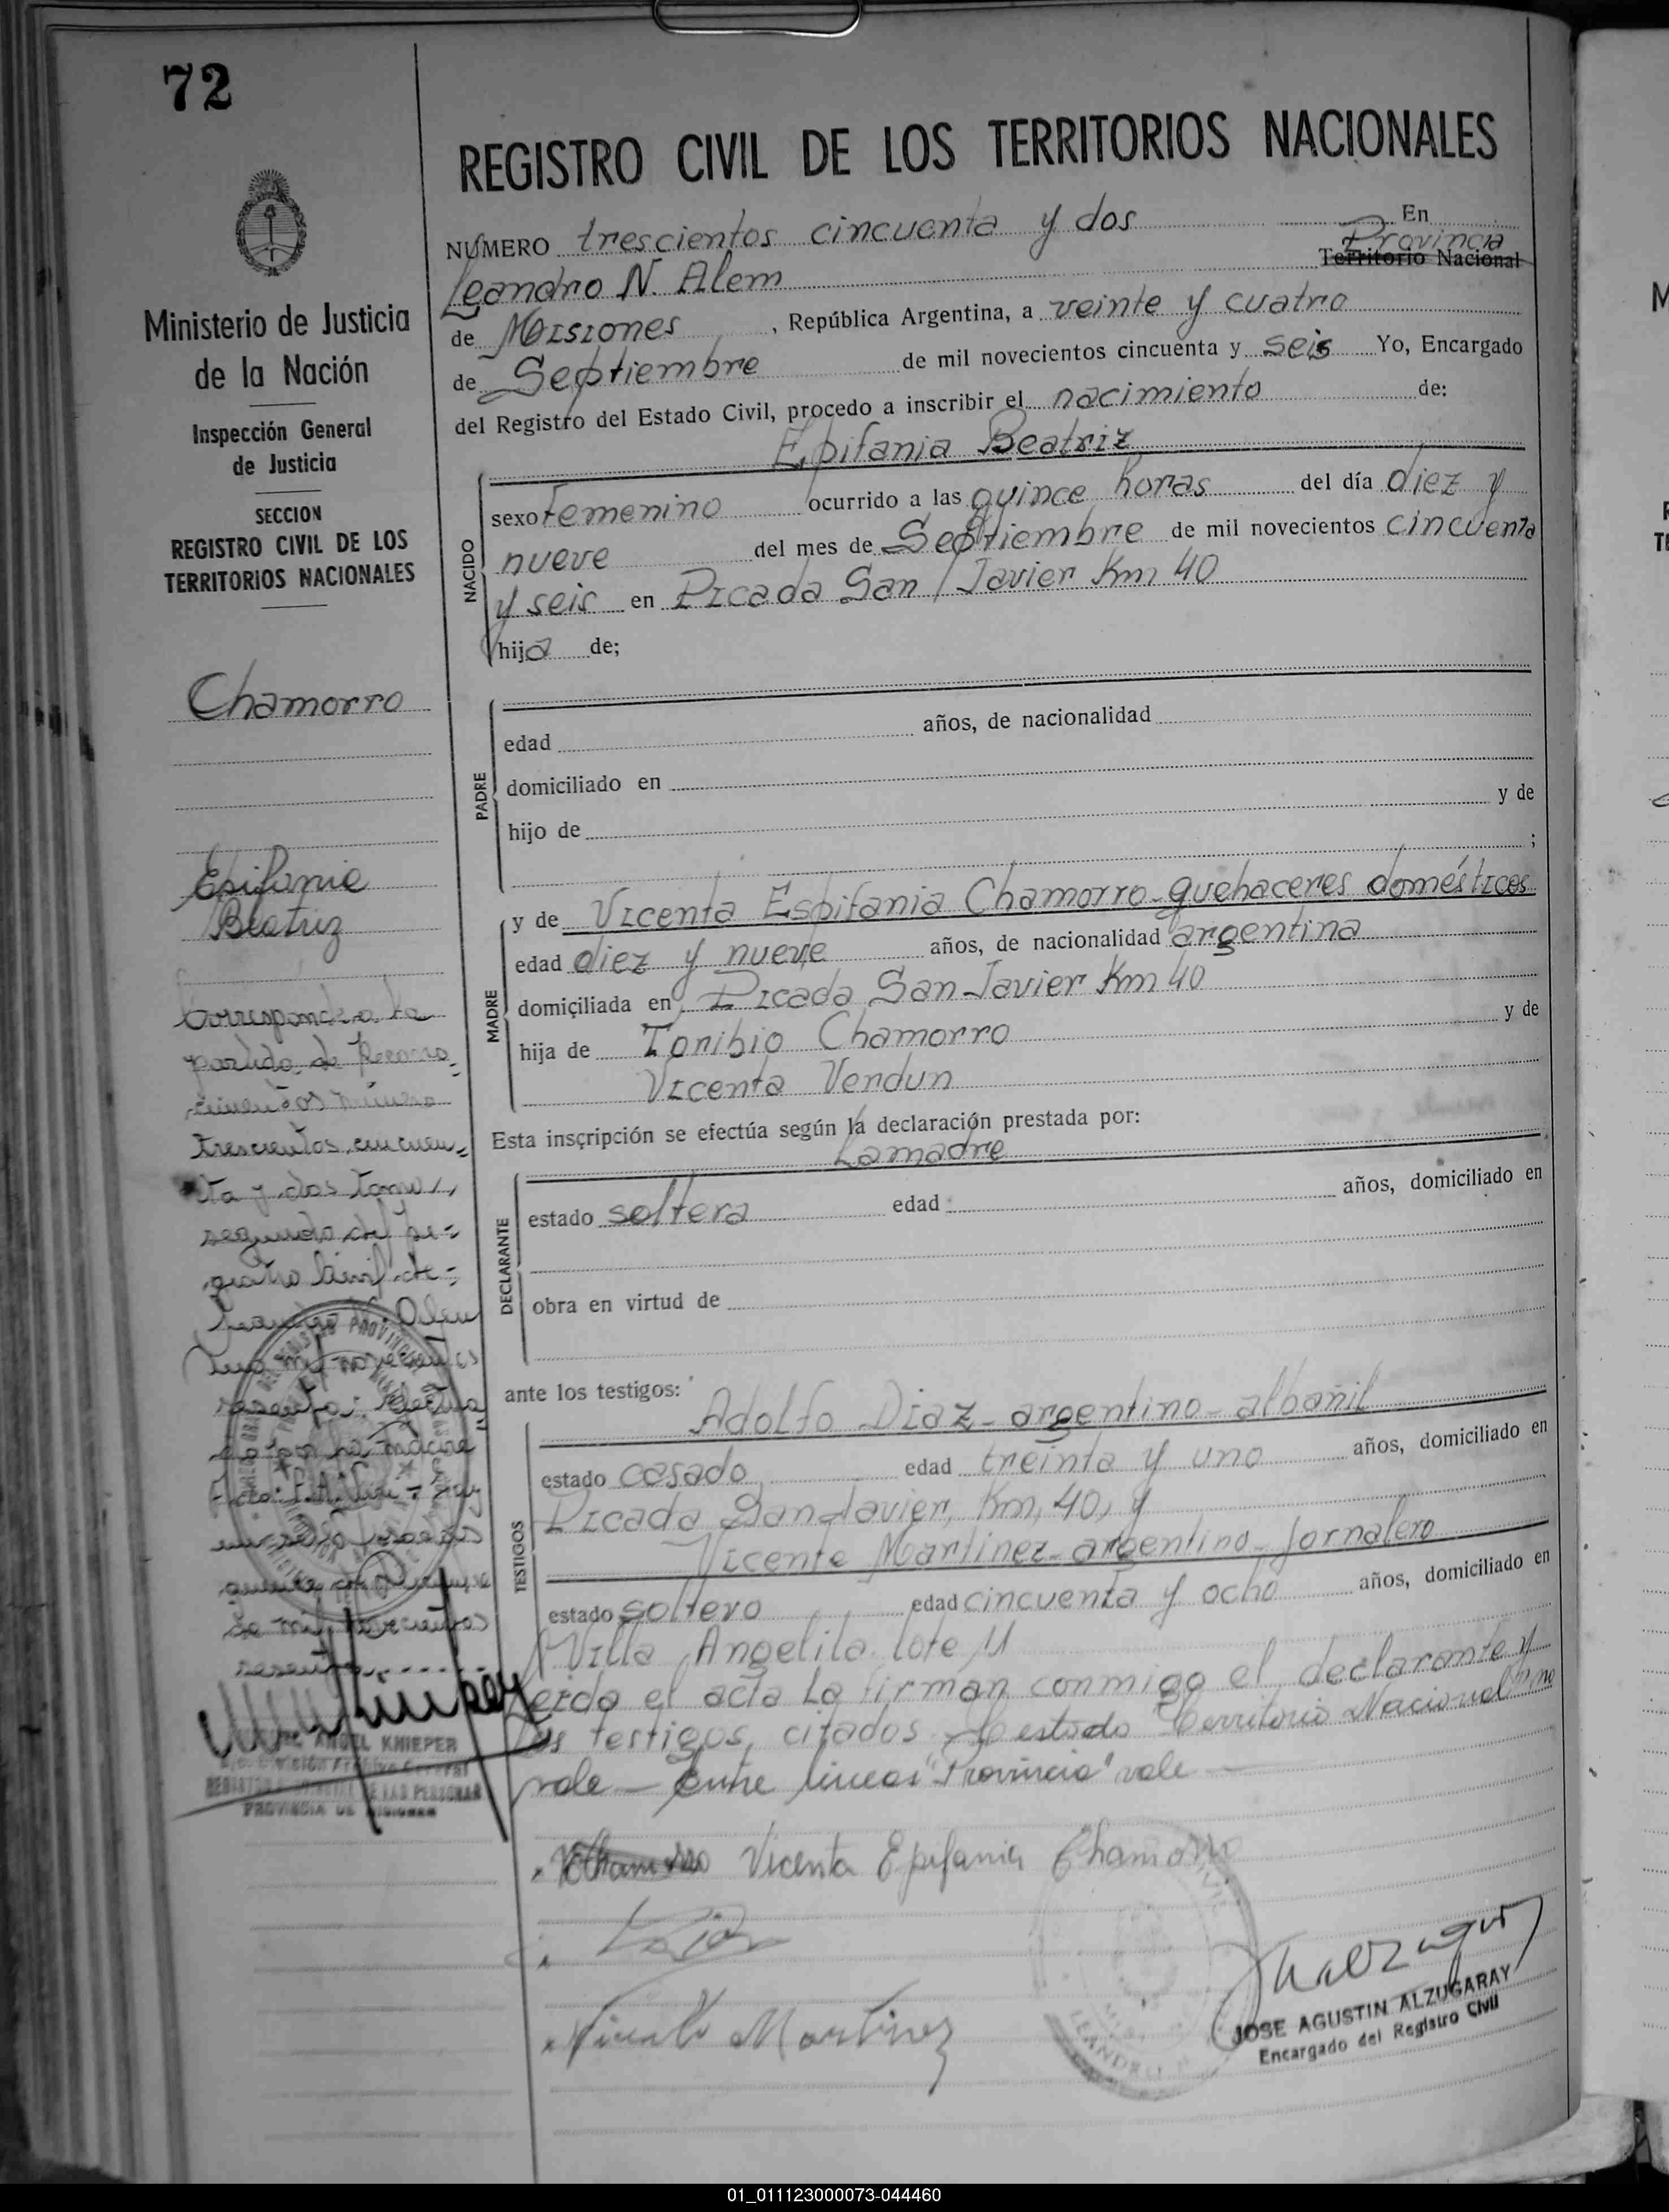 72
Ministerio de Justicia
de la Nación
Inspección General
de Justicia
SECCION
REGISTRO CIVIL DE LOS
TERRITORIOS NACIONALES
Chamorro
Epifania
Beatriz
Corresponde a la
partida de
número
trescientos cincuen-
ta y dos tomo
segundo del
de
Leandro N. Alem
mil novecientos
la madre
de mil novecientos
ANGEL KNIEPER
REGISTRO PROVINCIAL DE LAS PERSONAS
PROVINCIA DE MISIONES
REGISTRO CIVIL DE LOS TERRITORIOS NACIONALES
NUMERO trescientos cincuenta y dos En
Provincia
Leandro N. Alem Territorio Nacional
de Misiones , República Argentina, a veinte y cuatro
de Septiembre de mil novecientos cincuenta y seis Yo, Encargado
del Registro del Estado Civil, procedo a inscribir el nacimiento de:
Epifania Beatriz
NACIDO
sexo Femenino ocurrido a las quince horas del día diez y
nueve del mes de Septiembre de mil novecientos cincuenta
y seis en Picada San Javier Km 40
hija de;
PADRE
edad años, de nacionalidad
domiciliado en
hijo de y de
;
MADRE
y de Vicenta Espifania Chamorro-quehaceres domésticos
edad diez y nueve años, de nacionalidad argentina
domiciliada en Picada San Javier Km 40
hija de Toribio Chamorro y de
Vicenta Verdun
Esta inscripción se efectúa según la declaración prestada por:
La madre
DECLARANTE
estado soltera edad años, domiciliado en
obra en virtud de
ante los testigos:
Adolfo Diaz- argentino- albañil
TESTIGOS
estado casado edad treinta y uno años, domiciliado en
Picada San Javier, Km, 40, y
Vicente Martinez- argentino- jornalero
estado soltero edad cincuenta y ocho años, domiciliado en
Villa Angelita lote 11
Leida el acta la firman conmigo el declarante y
los testigos, citados. Testado Territorio Nacional no
vale — Entre lineas "Provincia" vale —
Vicenta Epifania Chamorro
Vicente Martinez
JOSE AGUSTIN ALZUGARAY
Encargado del Registro Civil
01_011123000073-044460